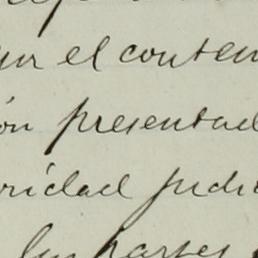 el conten
ón presentad
ridad judi
las partes